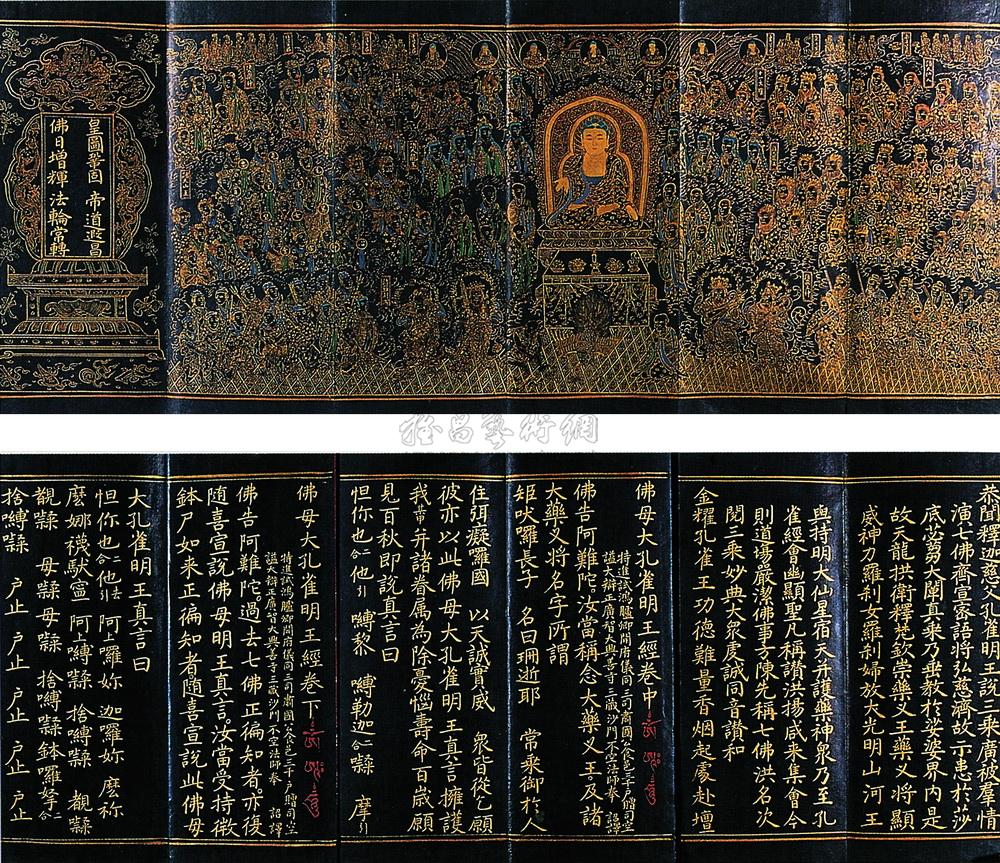 皇圖鞏固 帝道遐昌
佛日增輝 法輪常轉
雅昌藝術網
恭聞釋迦慈父孔雀明王說三乘廣被羣情
演七佛齊宣密語將弘慈濟故示患於莎
底苾芻大闡真乘乃垂教於娑婆界內是
故天龍拱衛釋梵欽崇藥叉王藥叉將顯
威神力羅剎女羅剎婦放大光明山河王
與持明大仙星宿天并護藥神泉乃至孔
雀經會幽顯聖凡稱讚洪揚咸來集會今
則道場嚴潔佛事敷陳先稱七佛洪名次
閱三乘妙典大衆虔誠同音讚和
金耀孔雀王功德難量香烟起處赴壇
佛母大孔雀明王經卷中
特進試鴻臚卿開府儀同三司肅國公食邑三千戶贈司空
謚大辯正廣智大興善寺三藏沙門不空法師奉 詔譯
佛告阿難陀汝當稱念大藥叉王及諸
大藥叉將名字所謂
矩吠羅長子 名曰珊逝耶 常乘御於人
住弭癡羅國 以天誠實威 衆皆從乞願
彼亦以此佛母大孔雀明王真言擁護
我等并諸眷屬為除憂惱壽命百歲願
見百秋即說真言曰
怛你也二合他引 嚩黎 嚩勒迦二合𭌆 摩引
佛母大孔雀明王經卷下
特進試鴻臚卿開府儀同三司肅國公食邑三千戶贈司空
謚大辯正廣智大興善寺三藏沙門不空法師奉 詔譯
佛告阿難陀過去七佛正徧知者亦復
隨喜宣說佛母明王真言汝當受持微
鉢尸如來正徧知者隨喜宣說此佛母
大孔雀明王真言曰